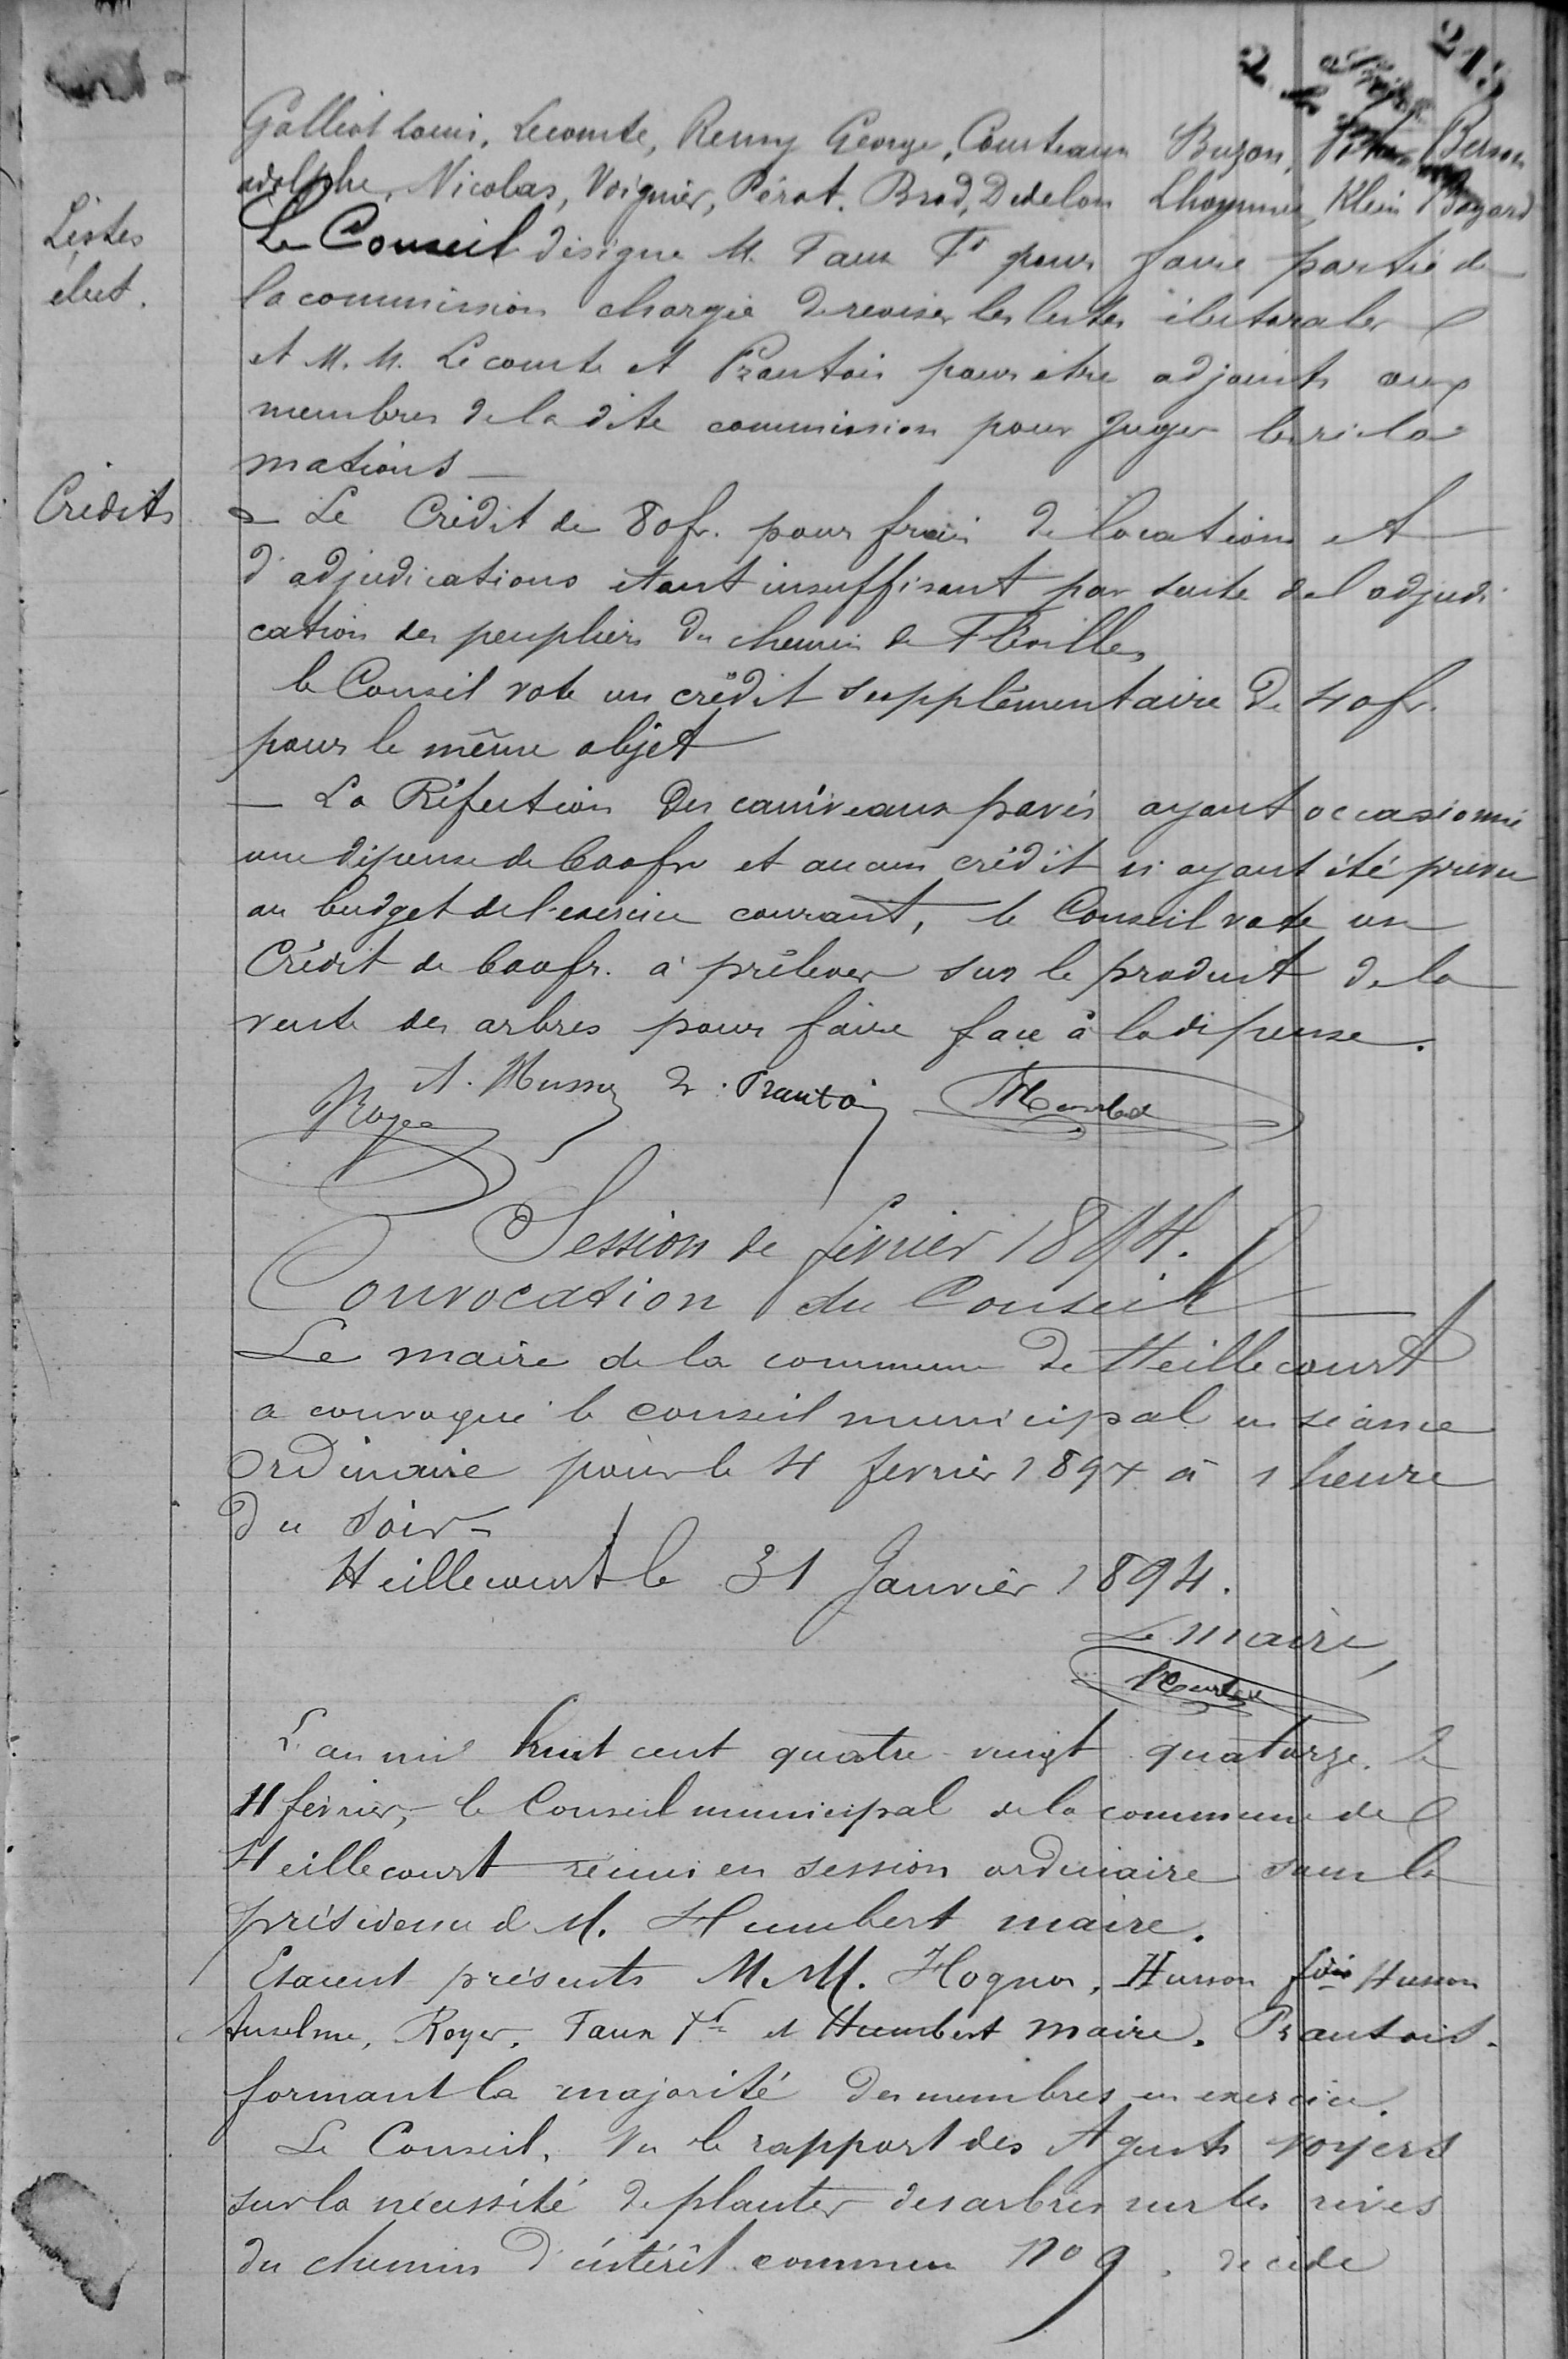 Galliot Louis, Lecomte, Remy George, Courteaux Buzon, Berson
adolphe, Nicolas, Voignier, Pérot, Brod, Dedelon Lhommée, Klein Bayard
Listes
élect.
Le Conseil désigne M. Faux Fs pour faire partie de
la commission chargée de reviser les listes électorales
et M. M. Lecomte et Prautois pour être adjoints aux
membres de la dite commission pour juger les récla
mations —
Crédits
— Le Crédit de 80 fr. pour frais de locations et
d'adjudications étant insuffisant par suite de l'adjudi
cation des peupliers du chemin de Fléville,
le Conseil vote un crédit supplémentaire de 40 fr.
pour le même objet
— La Réfection des caniveaux pavés ayant occasionné
une dépense de 600 fr et aucun crédit n'ayant été prévu
au budget de l'exercice courant, le Conseil vote un
Crédit de 600 fr. à prélever sur le produit de la
vente des arbres pour faire face à la dépense.
Royer A. Husson Prautois Humbert
Session de février 1894.
Convocation du Conseil
Le maire de la commune de Heillecourt
a convoqué le conseil municipal en séance
Ordinaire pour le 4 fevrier 1894 à 1 heure
du soir —
Heillecourt le 31 Janvier 1894.
Le maire,
Humbert
L'an mil huit cent quatre-vingt quatorze. le
4 février, le Conseil municipal de la commune de
Heillecourt réuni en session ordinaire sous la
présidence de M. Humbert maire.
Etaient présents M. M. Hognon, Husson fois Husson
Anselme, Royer, Faux Fs et Humbert maire. Prautois.
formant la majorité des membres en exercice.
Le Conseil, Vu le rapport des Agents voyers
sur la nécessité de planter des arbres sur les rives
du chemin d'intérêt commun No 9, décide